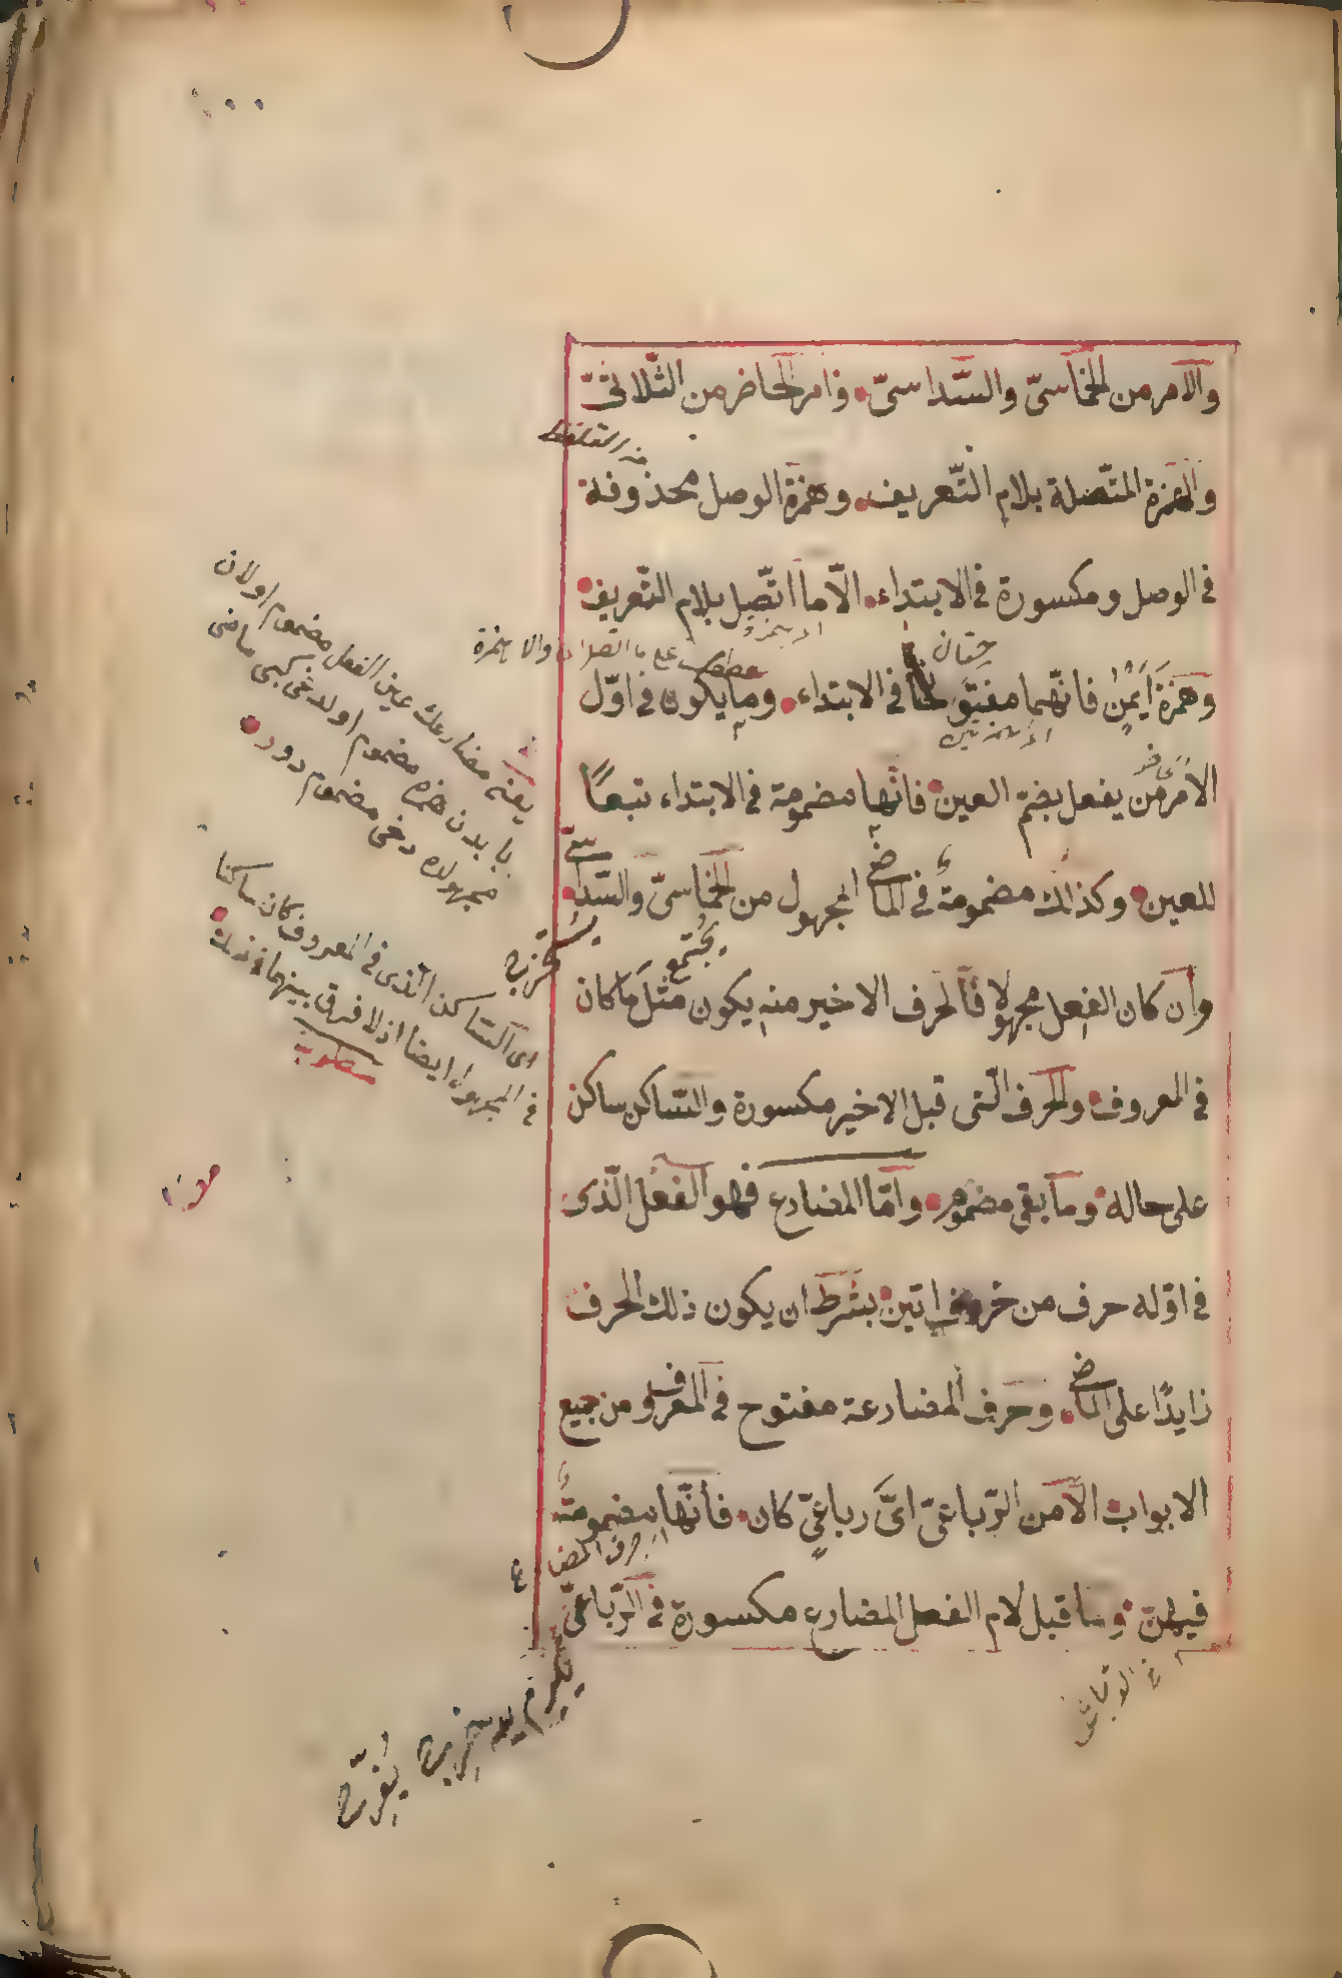 والامر من الخماسىّ والسّداسىّ وامر الحاضر من الثّلاثىّ
والهمزة المتّصلة بلام التّعريف وهمزة الوصل محذوفة
فى الوصل ومكسورة فى الابتداء الّا ما اتّصل بلام التّعريف
وهمزة ايمن فانّهما مفتوحتان فى الابتداء وما يكون فى اوّل
الامر من يفعل بضمّ العين فانّها مضمومة فى الابتداء تبعًا
للعين وكذلك مضمومة فى الماضى المجهول من الخماسىّ والسّداسىّ
وان كان الفعل مجهولا فالحرف الاخير منه يكون مثل ما كان
فى المعروف والحرف الّتى قبل الاخير مكسورة والسّاكن ساكن
على حاله وما بقى مضموم وامّا المضارع فهو الفعل الّذى
فى اوّله حرف من حروف اتين بشرط ان يكون ذلك الحرف
زايدًا على الماضى وحرف المضارعة مفتوح فى المعروف من جميع
الابواب الّا من الرّباعىّ اىّ رباعىّ كان فانّها مضمومة
فيهنّ وما قبل لام الفعل المضارع مكسورة فى الرّباعىّ
عطف على ما اتصل
يعنى مضارعك عين الفعل مضموم اولان
مضموم اولدغى كبى ماضى
مجهولده دخى مضموم در
اى السّاكن الّذى فى المعروف كان ساكنا
فى المجهول ايضا اذ لا فرق بينهما فى ذلك
مطلوب